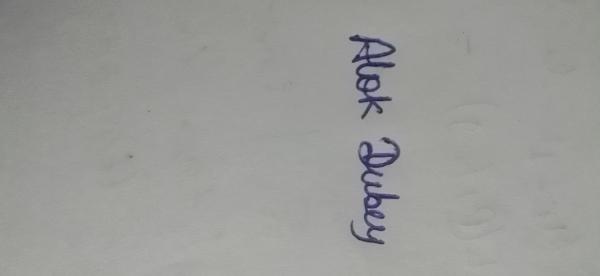 Alok Dubey